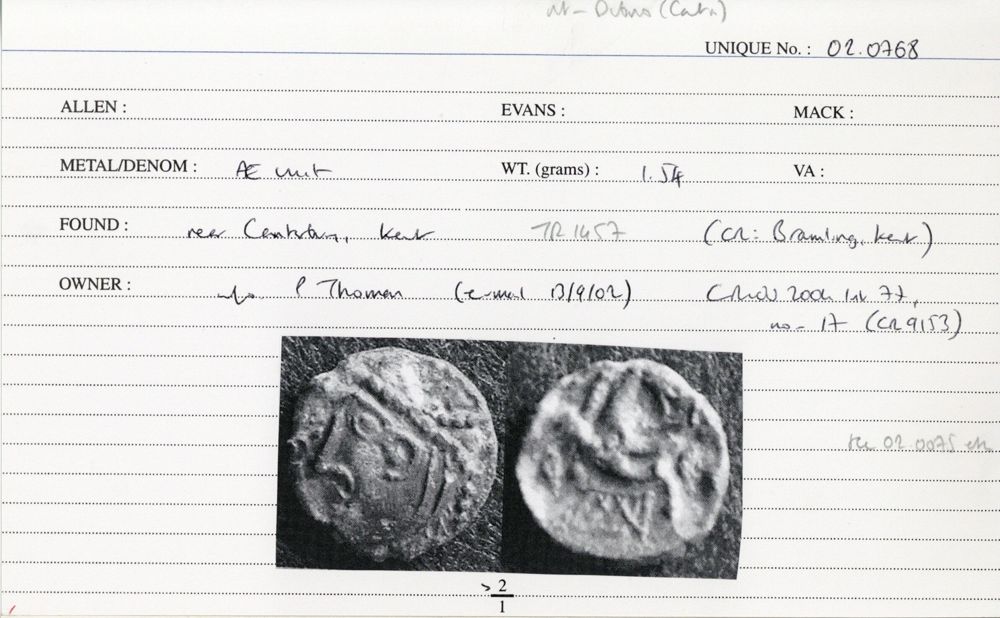 UNIQUE No. : 02.0768
ALLEN : EVANS : MACK :
METAL/DENOM : Æ unit WT. (grams) : 1.54 VA :
FOUND : near Canterbury, Kent TR 1457 (CR: Bramling, Kent)
OWNER : P Thomas (e-mail 13/9/02) 77,
no. 17 (CR 9153)
see 02.0075 etc
> 2
1